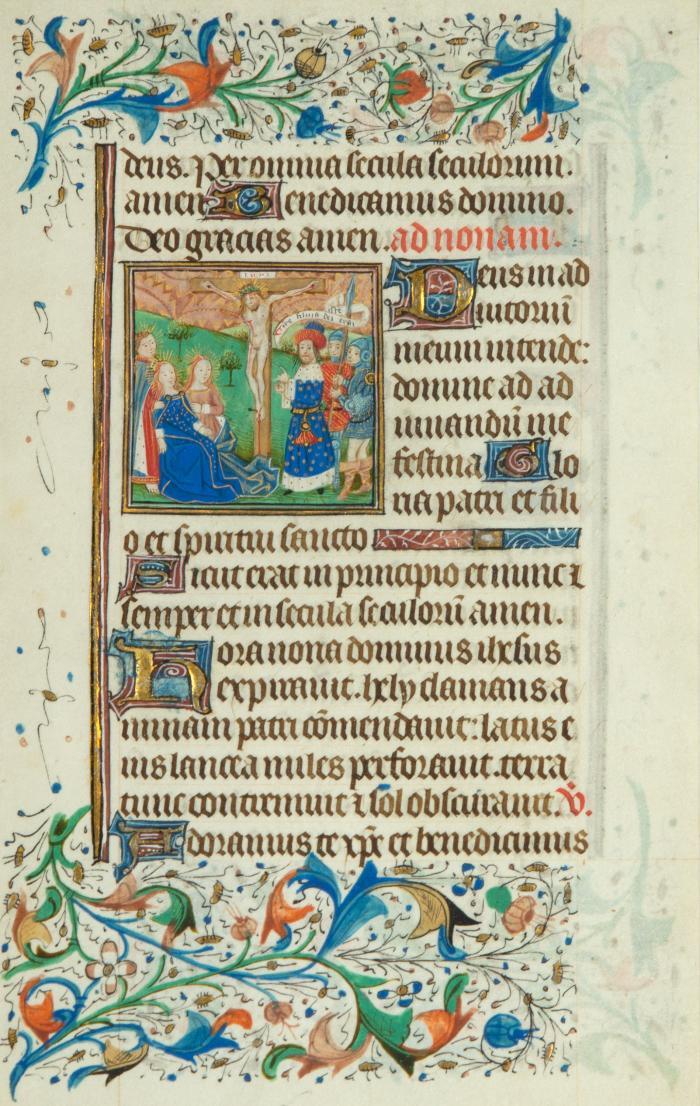 deus. per omnia secula seculorum.
amen Benedicamus domino.
Deo gracias amen. ad nonam.
Deus in ad
iutoriū
meum intende:
domine ad ad
iuuandū me
festina Glo
ria patri et fili
o et spiritui sancto
Sicut erat in principio et nunc ⁊
semper et in secula seculorū amen.
Hora nona dominus ihesus
expirauit. hely clamans a
nimam patri cōmendauit: latus e
ius lancea miles perforauit. terra
tunc contremuit ⁊ sol obscurauit. v̇.
Adoramus te xp̄e et benedicimus